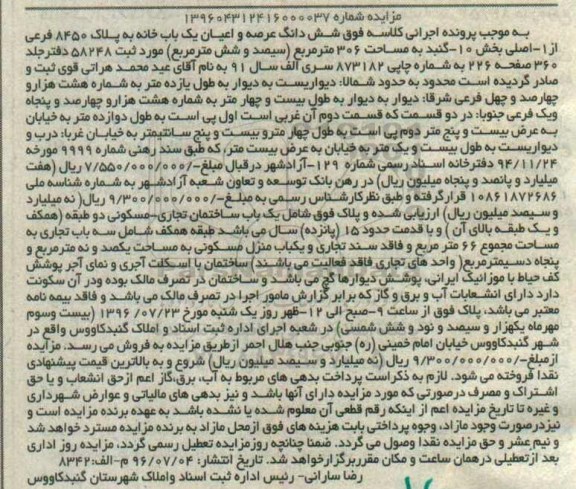 مزایده شماره ۱۳۹۶۰۴۳۱۲۴۱۶۰۰۰۰۳۷
به موجب پرونده اجرائی کلاسه فوق شش دانگ عرصه و اعیان یک باب خانه به پلاک ۸۴۵۰ فرعی
از ۱-اصلی بخش ۱۰-گنبد به مساحت ۳۰۶ مترمربع (سیصد و شش مترمربع) مورد ثبت ۵۸۲۴۸ دفترجلد
۳۶۰ صفحه ۲۲۶ به شماره چاپی ۸۷۳۱۸۲ سری الف سال ۹۱ به نام آقای عید محمد هراتی قوی ثبت و
صادر گردیده است محدود به حدود شمالا: دیواریست به دیوار به طول یازده متر به شماره هشت هزارو
چهارصد و چهل فرعی شرقا: دیوار به دیوار به طول بیست و چهار متر به شماره هشت هزارو چهارصد و پنجاه
ویک فرعی جنوبا: در دو قسمت که قسمت دوم آن غربی است اول پی است به طول دوازده متر به خیابان
به عرض بیست و پنج متر دوم پی است به طول چهار مترو بیست و پنج سانتیمتر به خیابان غربا: درب و
دیواریست به طول بیست و یک متر به خیابان به عرض بیست متر، که طبق سند رهنی شماره ۹۹۹۹ مورخه
۹۴/۱۱/۲۴ دفترخانه اسناد رسمی شماره ۱۲۹-آزادشهر درقبال مبلغ-/۷/۵۵۰/۰۰۰/۰۰۰ ریال (هفت
میلیارد و پانصد و پنجاه میلیون ریال) در رهن بانک توسعه و تعاون شعبه آزادشهر به شماره شناسه ملی
۱۰۸۶۱۸۷۲۶۸۶ قرارگرفته و طبق نظرکارشناس رسمی به مبلغ-/۹/۳۰۰/۰۰۰/۰۰۰ ریال( نه میلیارد
و سیصد میلیون ریال) ارزیابی شده و پلاک فوق شامل یک باب ساختمان تجاری-مسکونی دو طبقه (همکف
و یک طبقه بالای آن ) و با قدمت حدود ۱۵ (پانزده) سال می باشد طبقه همکف شامل سه باب تجاری به
مساحت مجموع ۶۶ متر مربع و فاقد سند تجاری و یکباب منزل مسکونی به مساحت یکصد و نه مترمربع و
پنجاه دسیمترمربع( واحد های تجاری فاقد فعالیت می باشند) ساختمان با اسکلت آجری و نمای آجر پوشش
کف حیاط با موزائیک ایرانی، پوشش دیوارها گچ می باشد و ساختمان در تصرف مالک بوده ودر آن سکونت
دارد دارای انشعابات آب و برق و گاز که برابر گزارش مامور اجرا در تصرف مالک می باشد و فاقد بیمه نامه
معتبر می باشد، پلاک فوق از ساعت ۹-صبح الی ۱۲-ظهر روز یک شنبه مورخ ۱۳۹۶/۰۷/۲۳ (بیست وسوم
مهرماه یکهزار و سیصد و نود و شش شمسی) در شعبه اجرای اداره ثبت اسناد و املاک گنبدکاووس واقع در
شهر گنبدکاووس خیابان امام خمینی (ره) جنوبی جنب هلال احمر ازطریق مزایده به فروش می رسد. مزایده
ازمبلغ-/۹/۳۰۰/۰۰۰/۰۰۰ ریال (نه میلیارد و سیصد میلیون ریال) شروع و به بالاترین قیمت پیشنهادی
نقدا فروخته می شود. لازم به ذکراست پرداخت بدهی های مربوط به آب، برق،گاز اعم ازحق انشعاب و یا حق
اشتراک و مصرف درصورتی که مورد مزایده دارای آنها باشد و نیز بدهی های مالیاتی و عوارض شهرداری
و غیره تا تاریخ مزایده اعم از اینکه رقم قطعی آن معلوم شده یا نشده باشد به عهده برنده مزایده است و
نیزدرصورت وجود مازاد، وجوه پرداختی بابت هزینه های فوق ازمحل مازاد به برنده مزایده مسترد خواهد شد
و نیم عشر و حق مزایده نقدا وصول می گردد. ضمنا چنانچه روزمزایده تعطیل رسمی گردد، مزایده روز اداری
بعد ازتعطیلی درهمان ساعت و مکان مقرربرگزارخواهد شد. تاریخ انتشار: ۹۶/۰۷/۰۴ م-الف:۸۳۴۲
رضا سارانی- رئیس اداره ثبت اسناد واملاک شهرستان گنبدکاووس